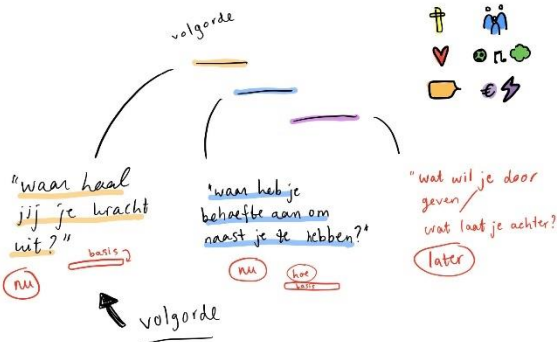 volgorde
"waar haal
jij je kracht
uit?"
basis
nu
"waar heb je
behoefte aan om
naast je te hebben?"
nu
hoe
basis
"wat wil je door
geven
wat laat je achter?
later
volgorde
€